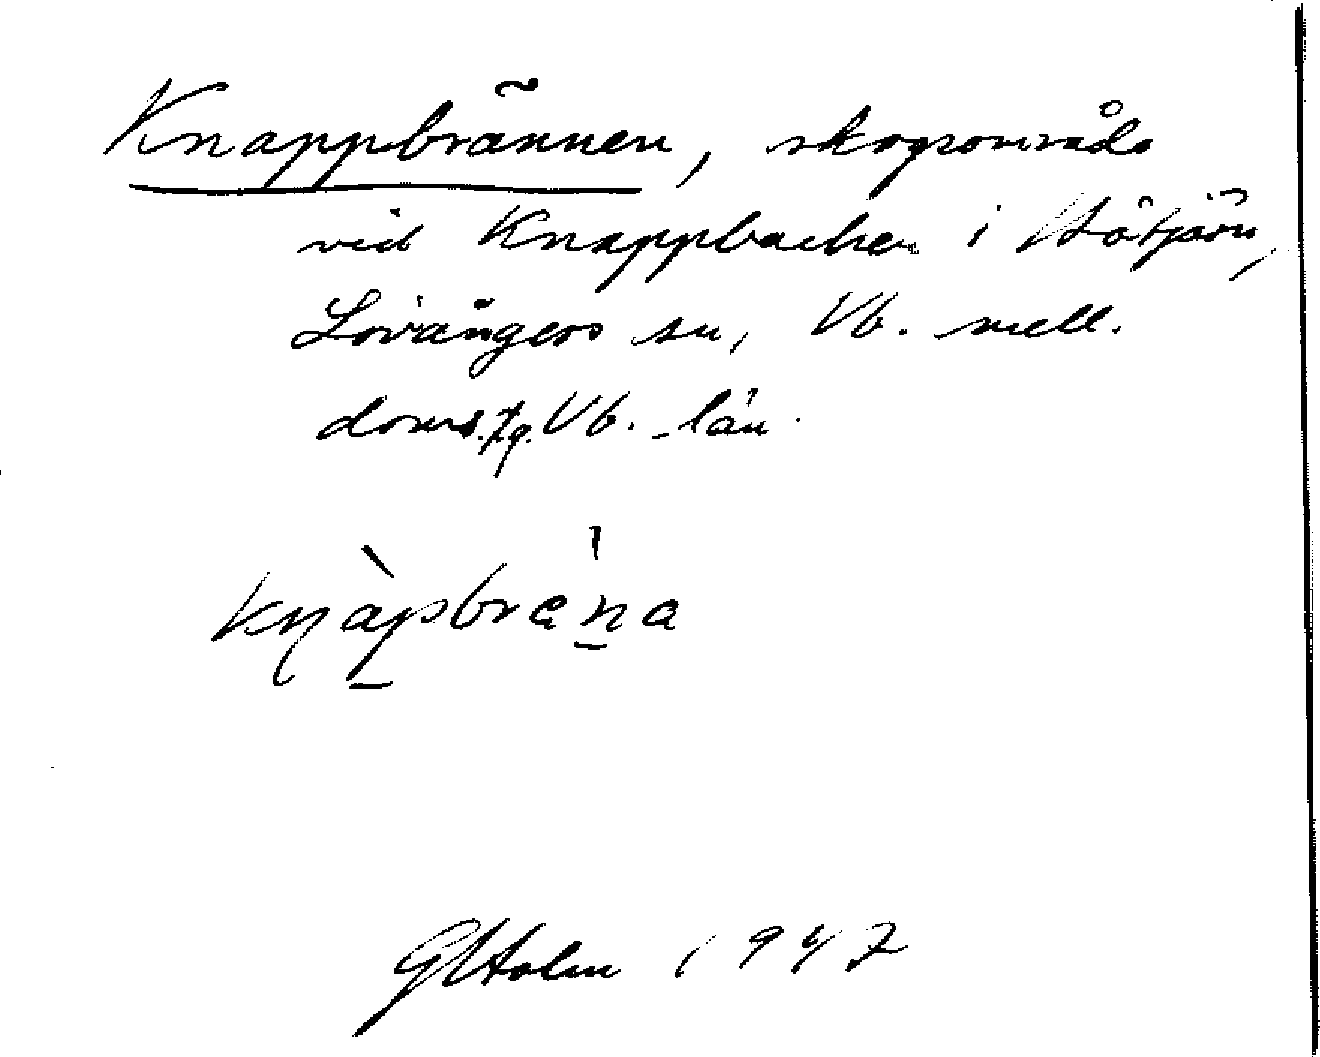 Knappbrännen, skogsområde
vid Knappbacken i Hötjärn,
Lövångers sn, Vb. mell.
doms.tg. Vb. län.
knàpbrána
GHolm 1947